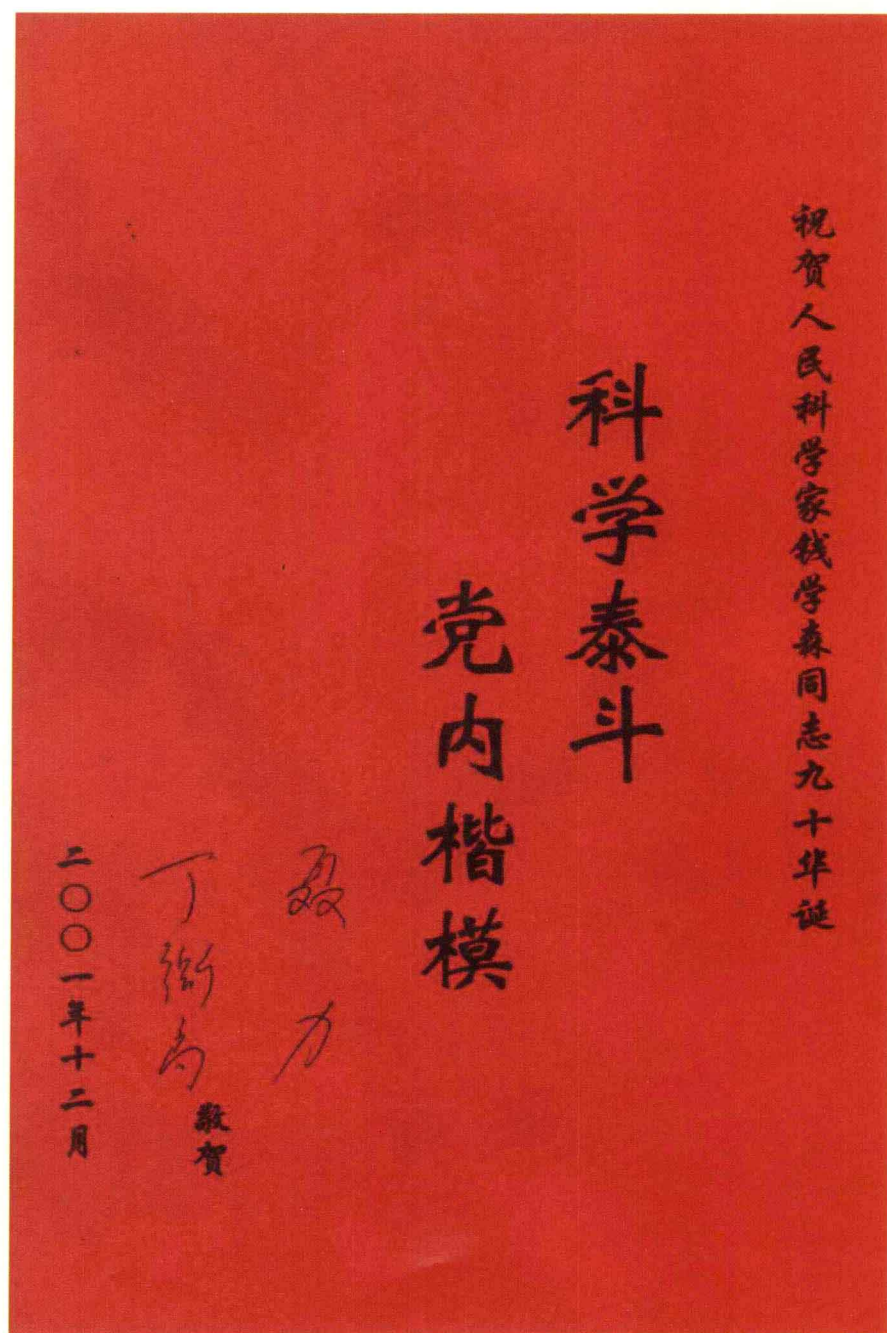 祝贺人民科学家钱学森同志九十华诞
科学泰斗
党内楷模
聂力
丁衡高
敬贺
二〇〇一年十二月